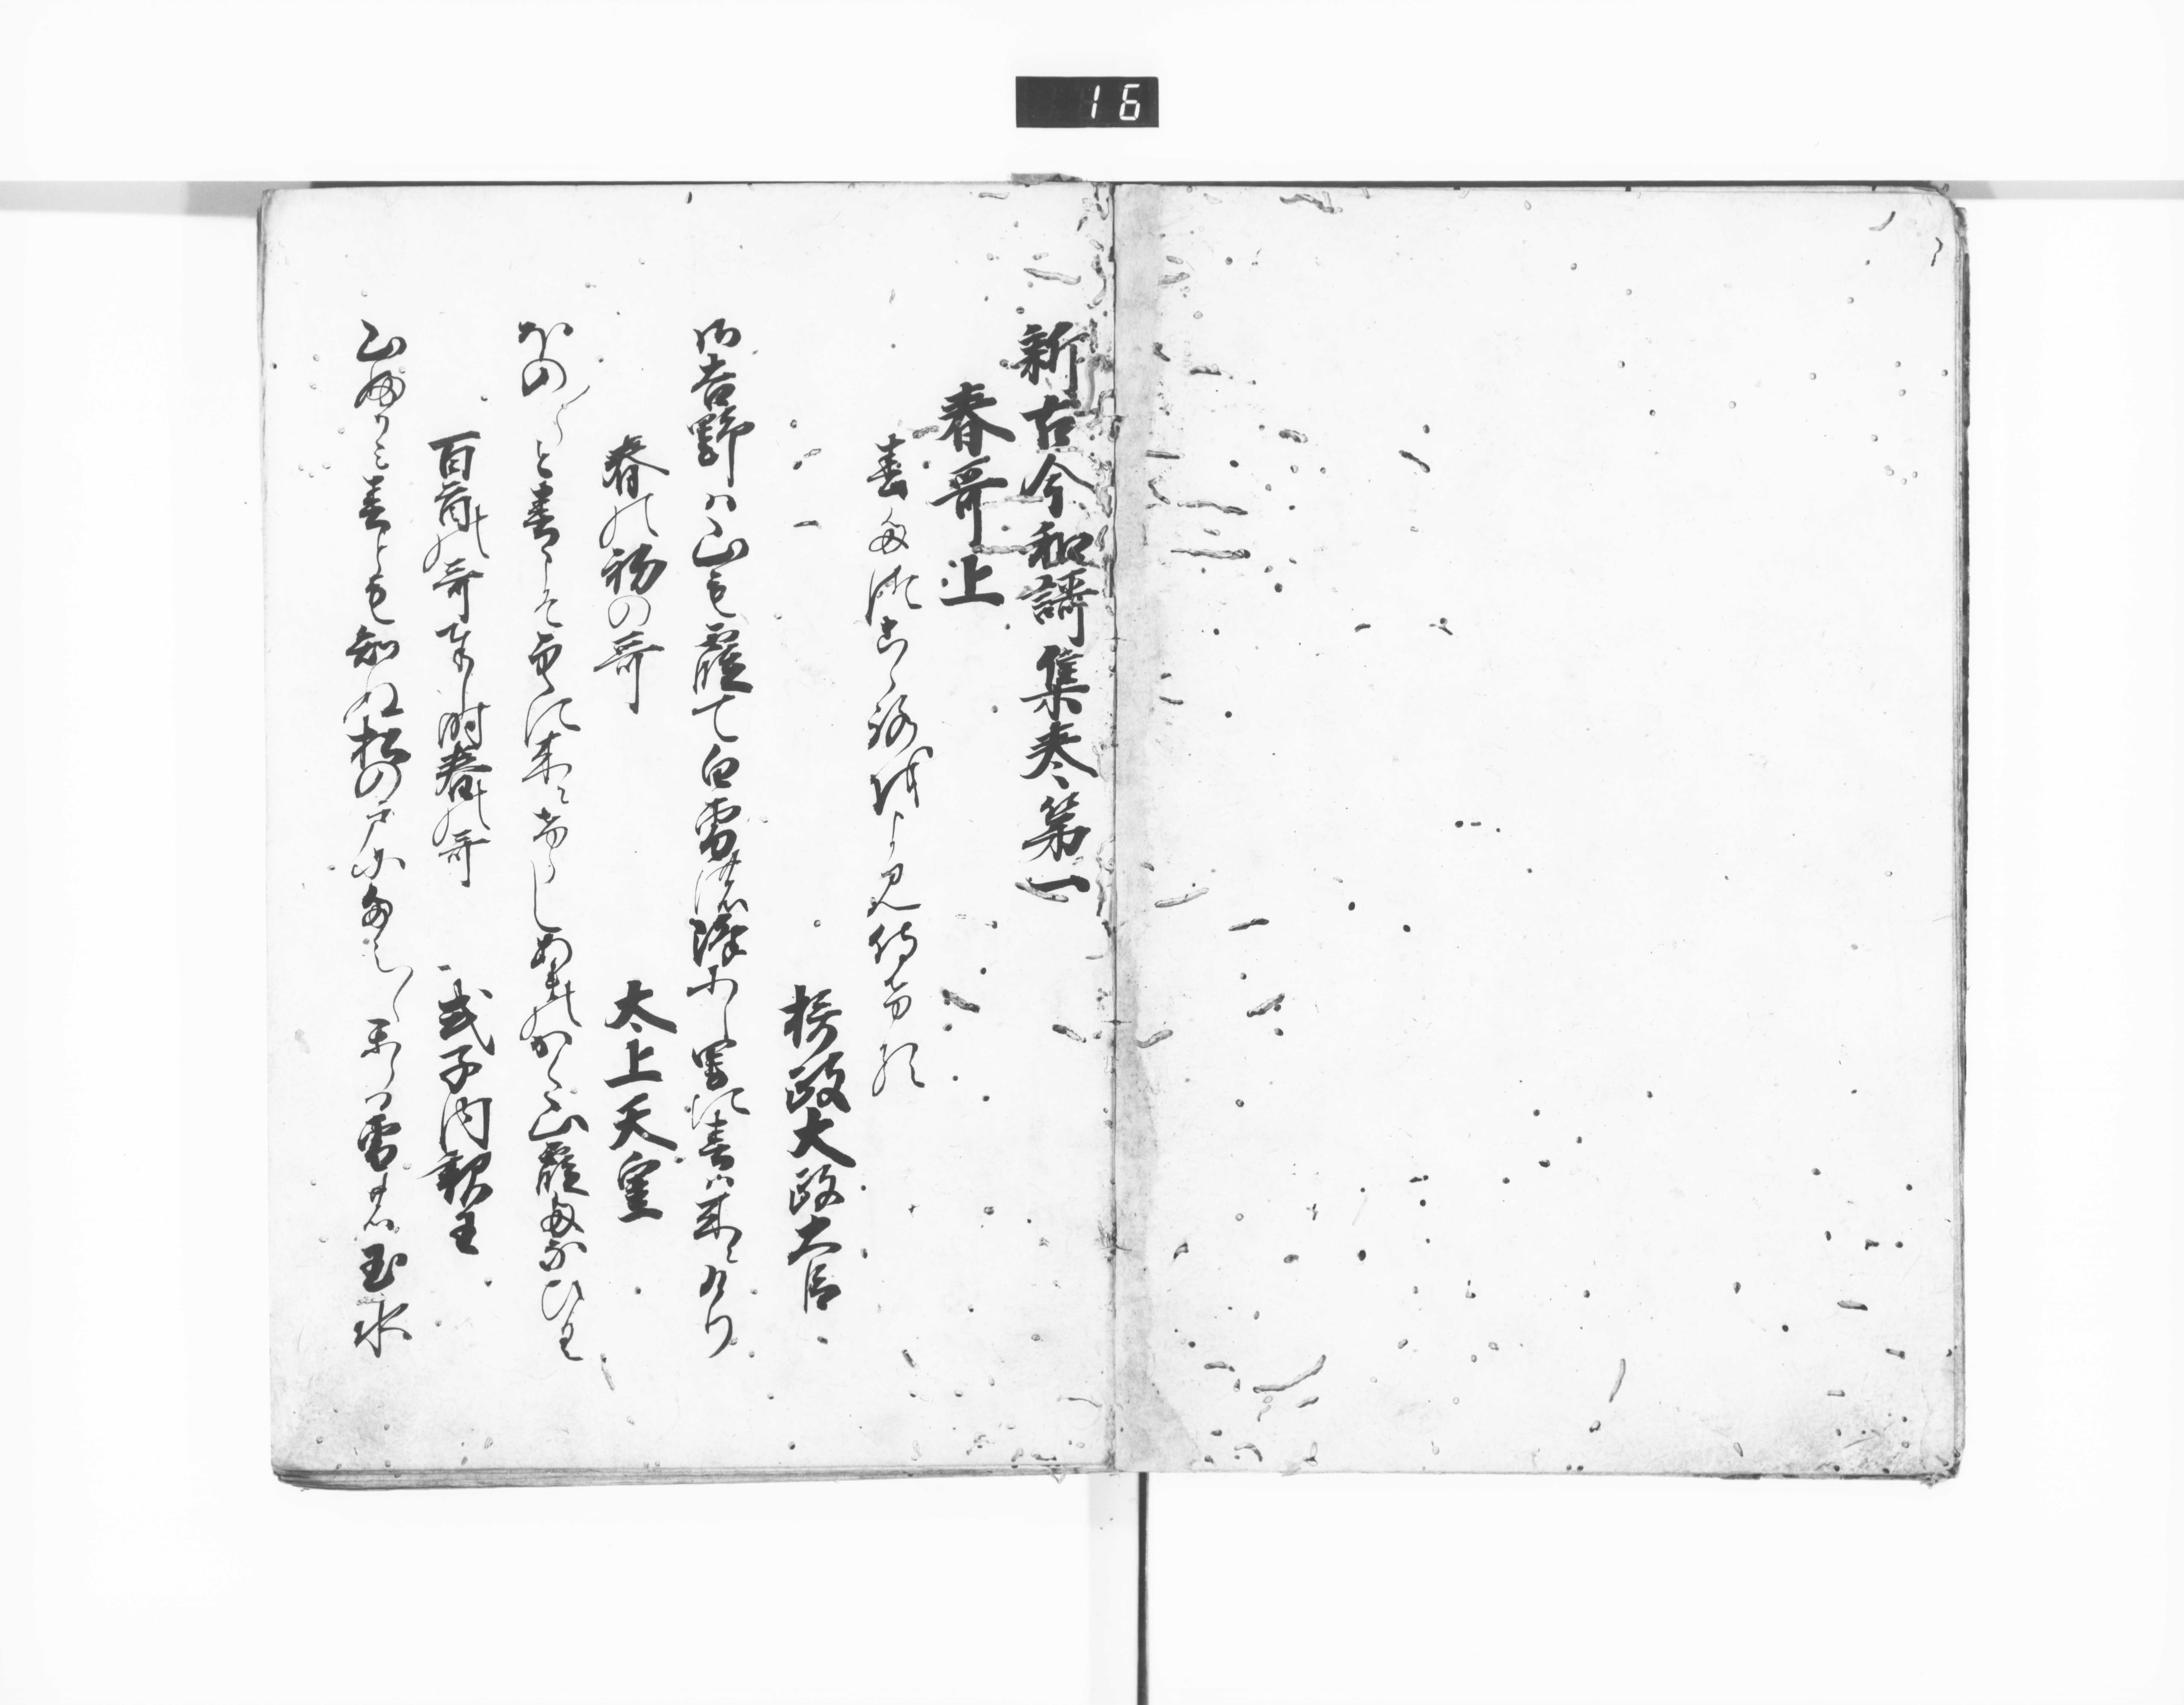 16
新古今和謌集巻第一
春哥上
春たつこゝろをよみ侍ける
摂政太政大臣
み吉野は山も霞て白雪のふりにし里に春は来にけり
春の初の哥
太上天皇
ほの〱と春こそ空に来にけらしあまのかく山霞たなひく
百首の哥奉し時春の哥
式子内親王
山ふかみ春とも知ぬ松の戸にたえ〱かゝる雪の玉水